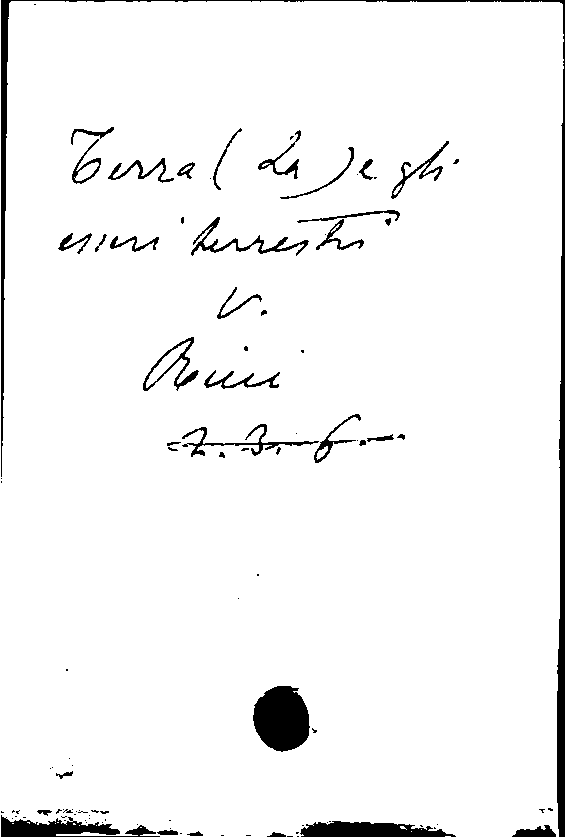 Terra (La) e gli
esseri terrestri
V.
Reini
2. 3. 6.